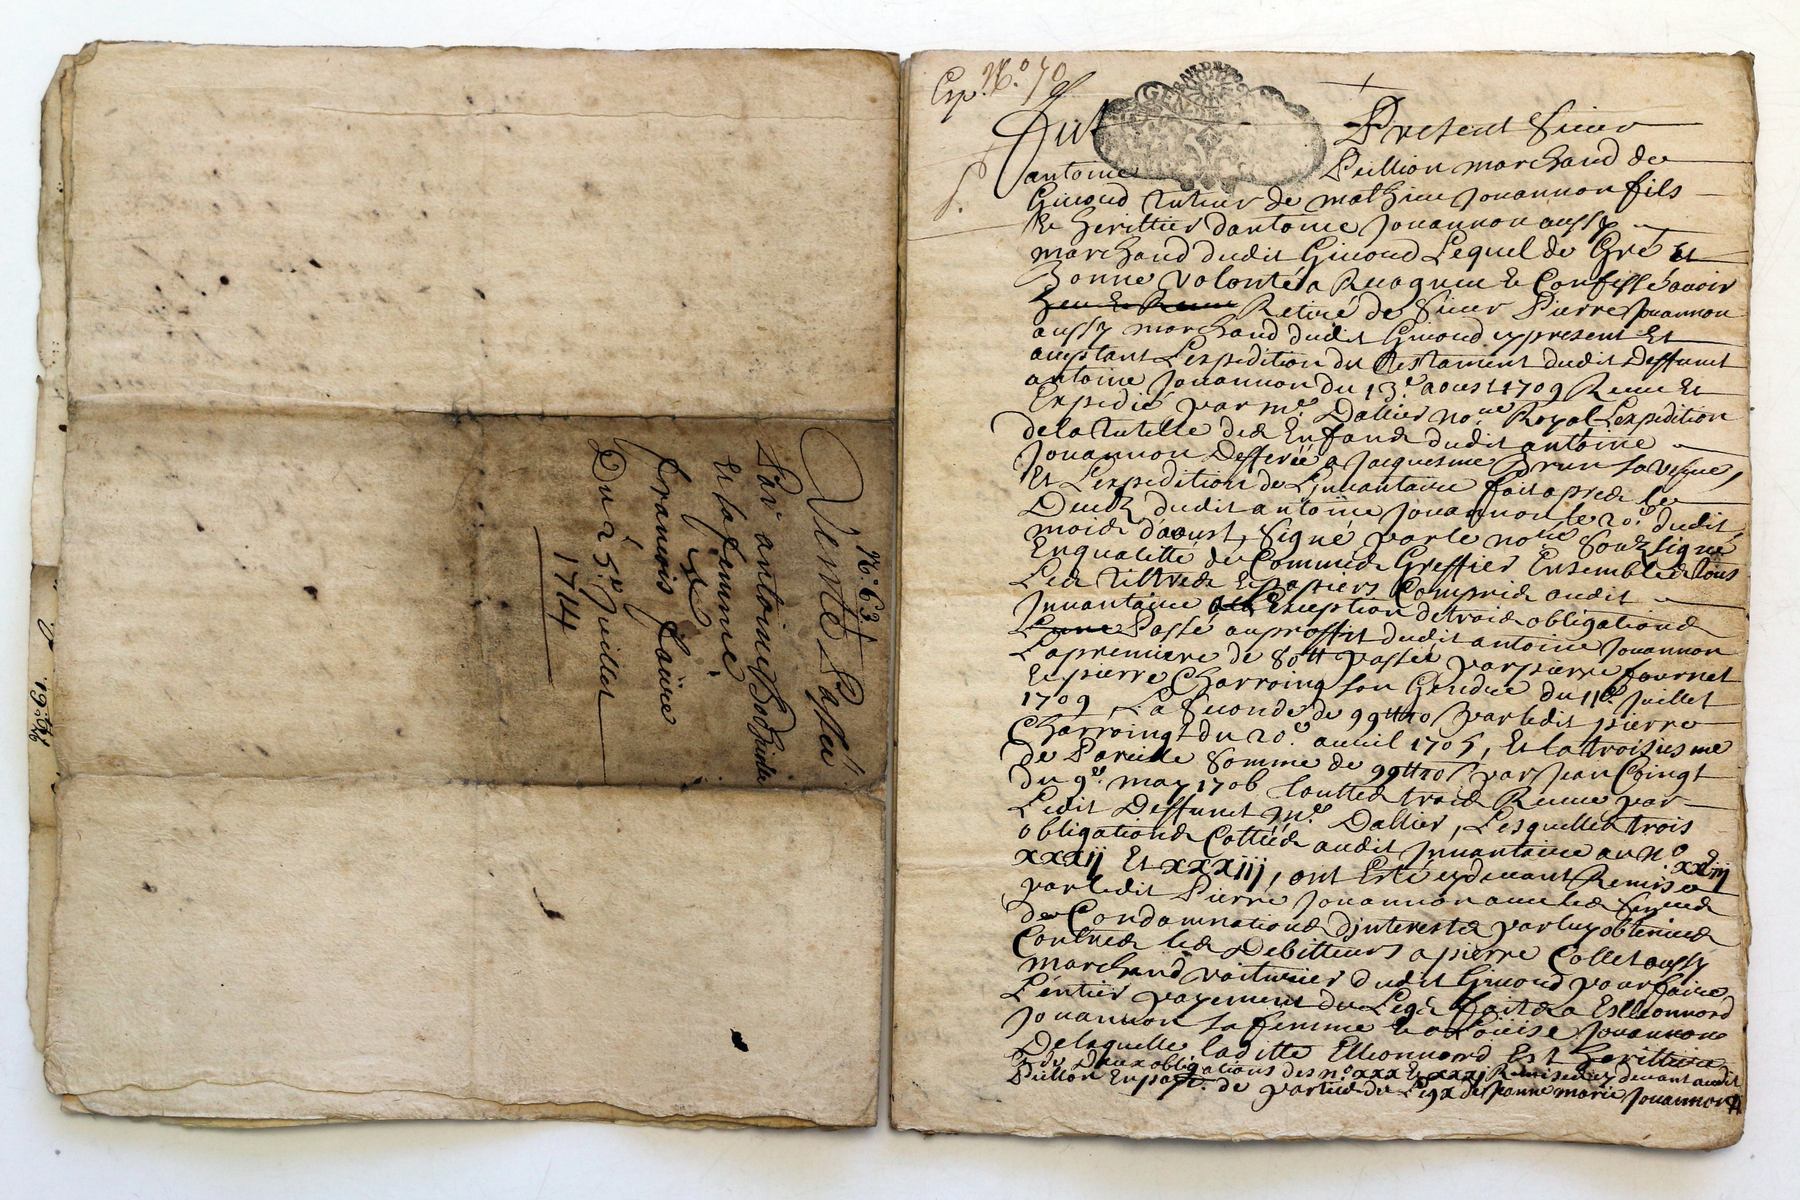 N.° 63
Vente Passée
Par antoine Bodhuile
Et sa femme
A
francois faure
Du 25.e Juillet
1714
Exp. N.° 70
fut Present Sieur
antoine Pullion marchand de
Givord tuteur de mathieu Jouannon fils
et herittier dantoine Jouannon aussy
marchand dudit Givord Lequel de Gré et
Bonne Volonté a Recognu et Confessé avoir
Retiré de Sieur Pierre Jouannon
aussy marchand dudit Givord cy present Et
aceptant L'expedition du testament dudit deffunct
antoine Jouannon du 13.e aoust 1709 Receu Et
Expedié par me. Dallier no.re Royal L'expedition
de la tutelle des Enfans dudit antoine
Jouannon Defferée a Jacquesme Brun sa vefve,
Et L'expedition de L'jnvantaire fait apres le
Decedz dudit antoine Jouannon le 20.e dudit
mois daoust, Signé par le no.re Soubzsigné
En qualitté de Commis Greffier Ensemble tous
Les tiltres et papiers Compris audit
Jnvantaire a Exception de trois obligations
Passé au proffit dudit antoine Jouannon
La premiere de 80 tt passée par pierre fournet
Et pierre Charroing son Gendre du 11.e Juillet
1709, La seconde de 99 tt 10 s par ledit pierre
Charroingt du 20.e avril 1705, Et la troisiesme
de Pareille Somme de 99 tt 10 s par Jean Coingt
du 9.e may 1706 touttes trois Receue par
Ledit Deffunct M.e Dallier, Lesquelles trois
obligations Cottées audit Jnvantaire au n.°
xxxij Et xxxiij, ont Esté cy devant Remise
par ledit Pierre Jouannon avec les
de Condamnations d'interests par luy obtenues
Contres les Debitteurs a pierre Collet aussy
marchand voiturier dudit Givord pour faire
L'entier payement du Legs fait a Elleonnord
Jouannon sa femme et a Loüise Jouannon
De laquelle laditte Elleonnord Est herittiere
Et de Deux obligations des n.° xxx Et xxxj Remises cy devant audit
Pullion En paye.t de partie du Legs de Jeanne marie Jouannon